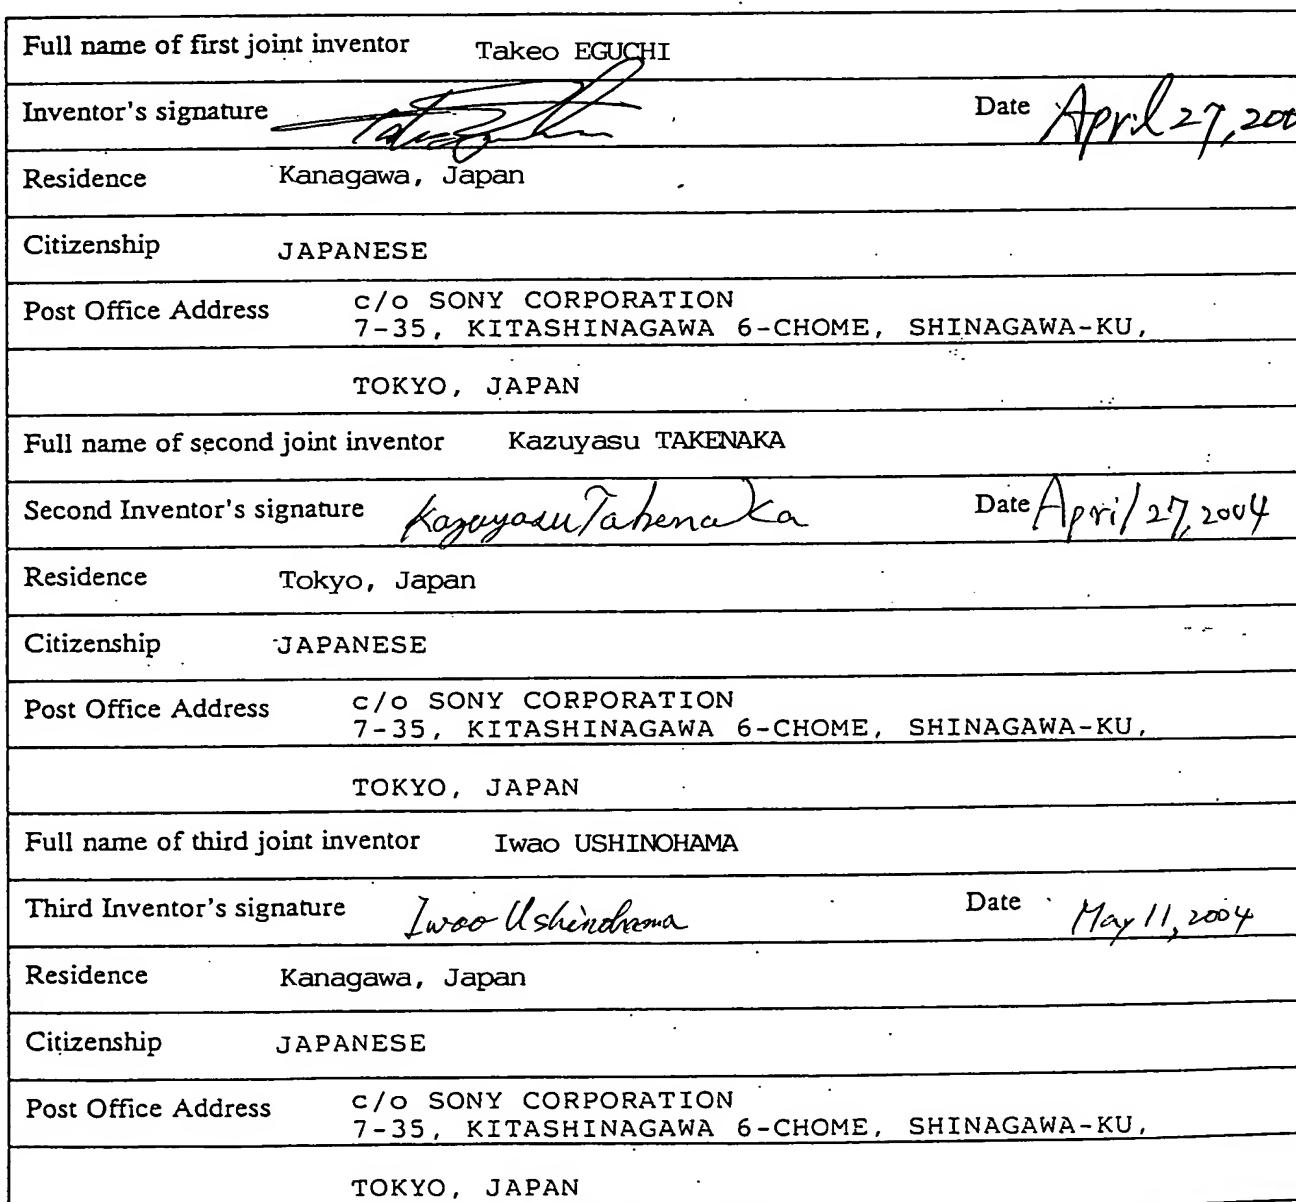 Full name of first joint inventor Takeo EGUCHI
Inventor's signature Date April 27, 200
Residence Kanagawa, Japan
Citizenship JAPANESE
Post Office Address c/o SONY CORPORATION
7-35, KITASHINAGAWA 6-CHOME, SHINAGAWA-KU,
TOKYO, JAPAN
Full name of second joint inventor Kazuyasu TAKENAKA
Second Inventor's signature Kazuyasu Takenaka Date April 27, 2004
Residence Tokyo, Japan
Citizenship JAPANESE
Post Office Address c/o SONY CORPORATION
7-35, KITASHINAGAWA 6-CHOME, SHINAGAWA-KU,
TOKYO, JAPAN
Full name of third joint inventor Iwao USHINOHAMA
Third Inventor's signature Iwao Ushinohama Date May 11, 2004
Residence Kanagawa, Japan
Citizenship JAPANESE
Post Office Address c/o SONY CORPORATION
7-35, KITASHINAGAWA 6-CHOME, SHINAGAWA-KU,
TOKYO, JAPAN